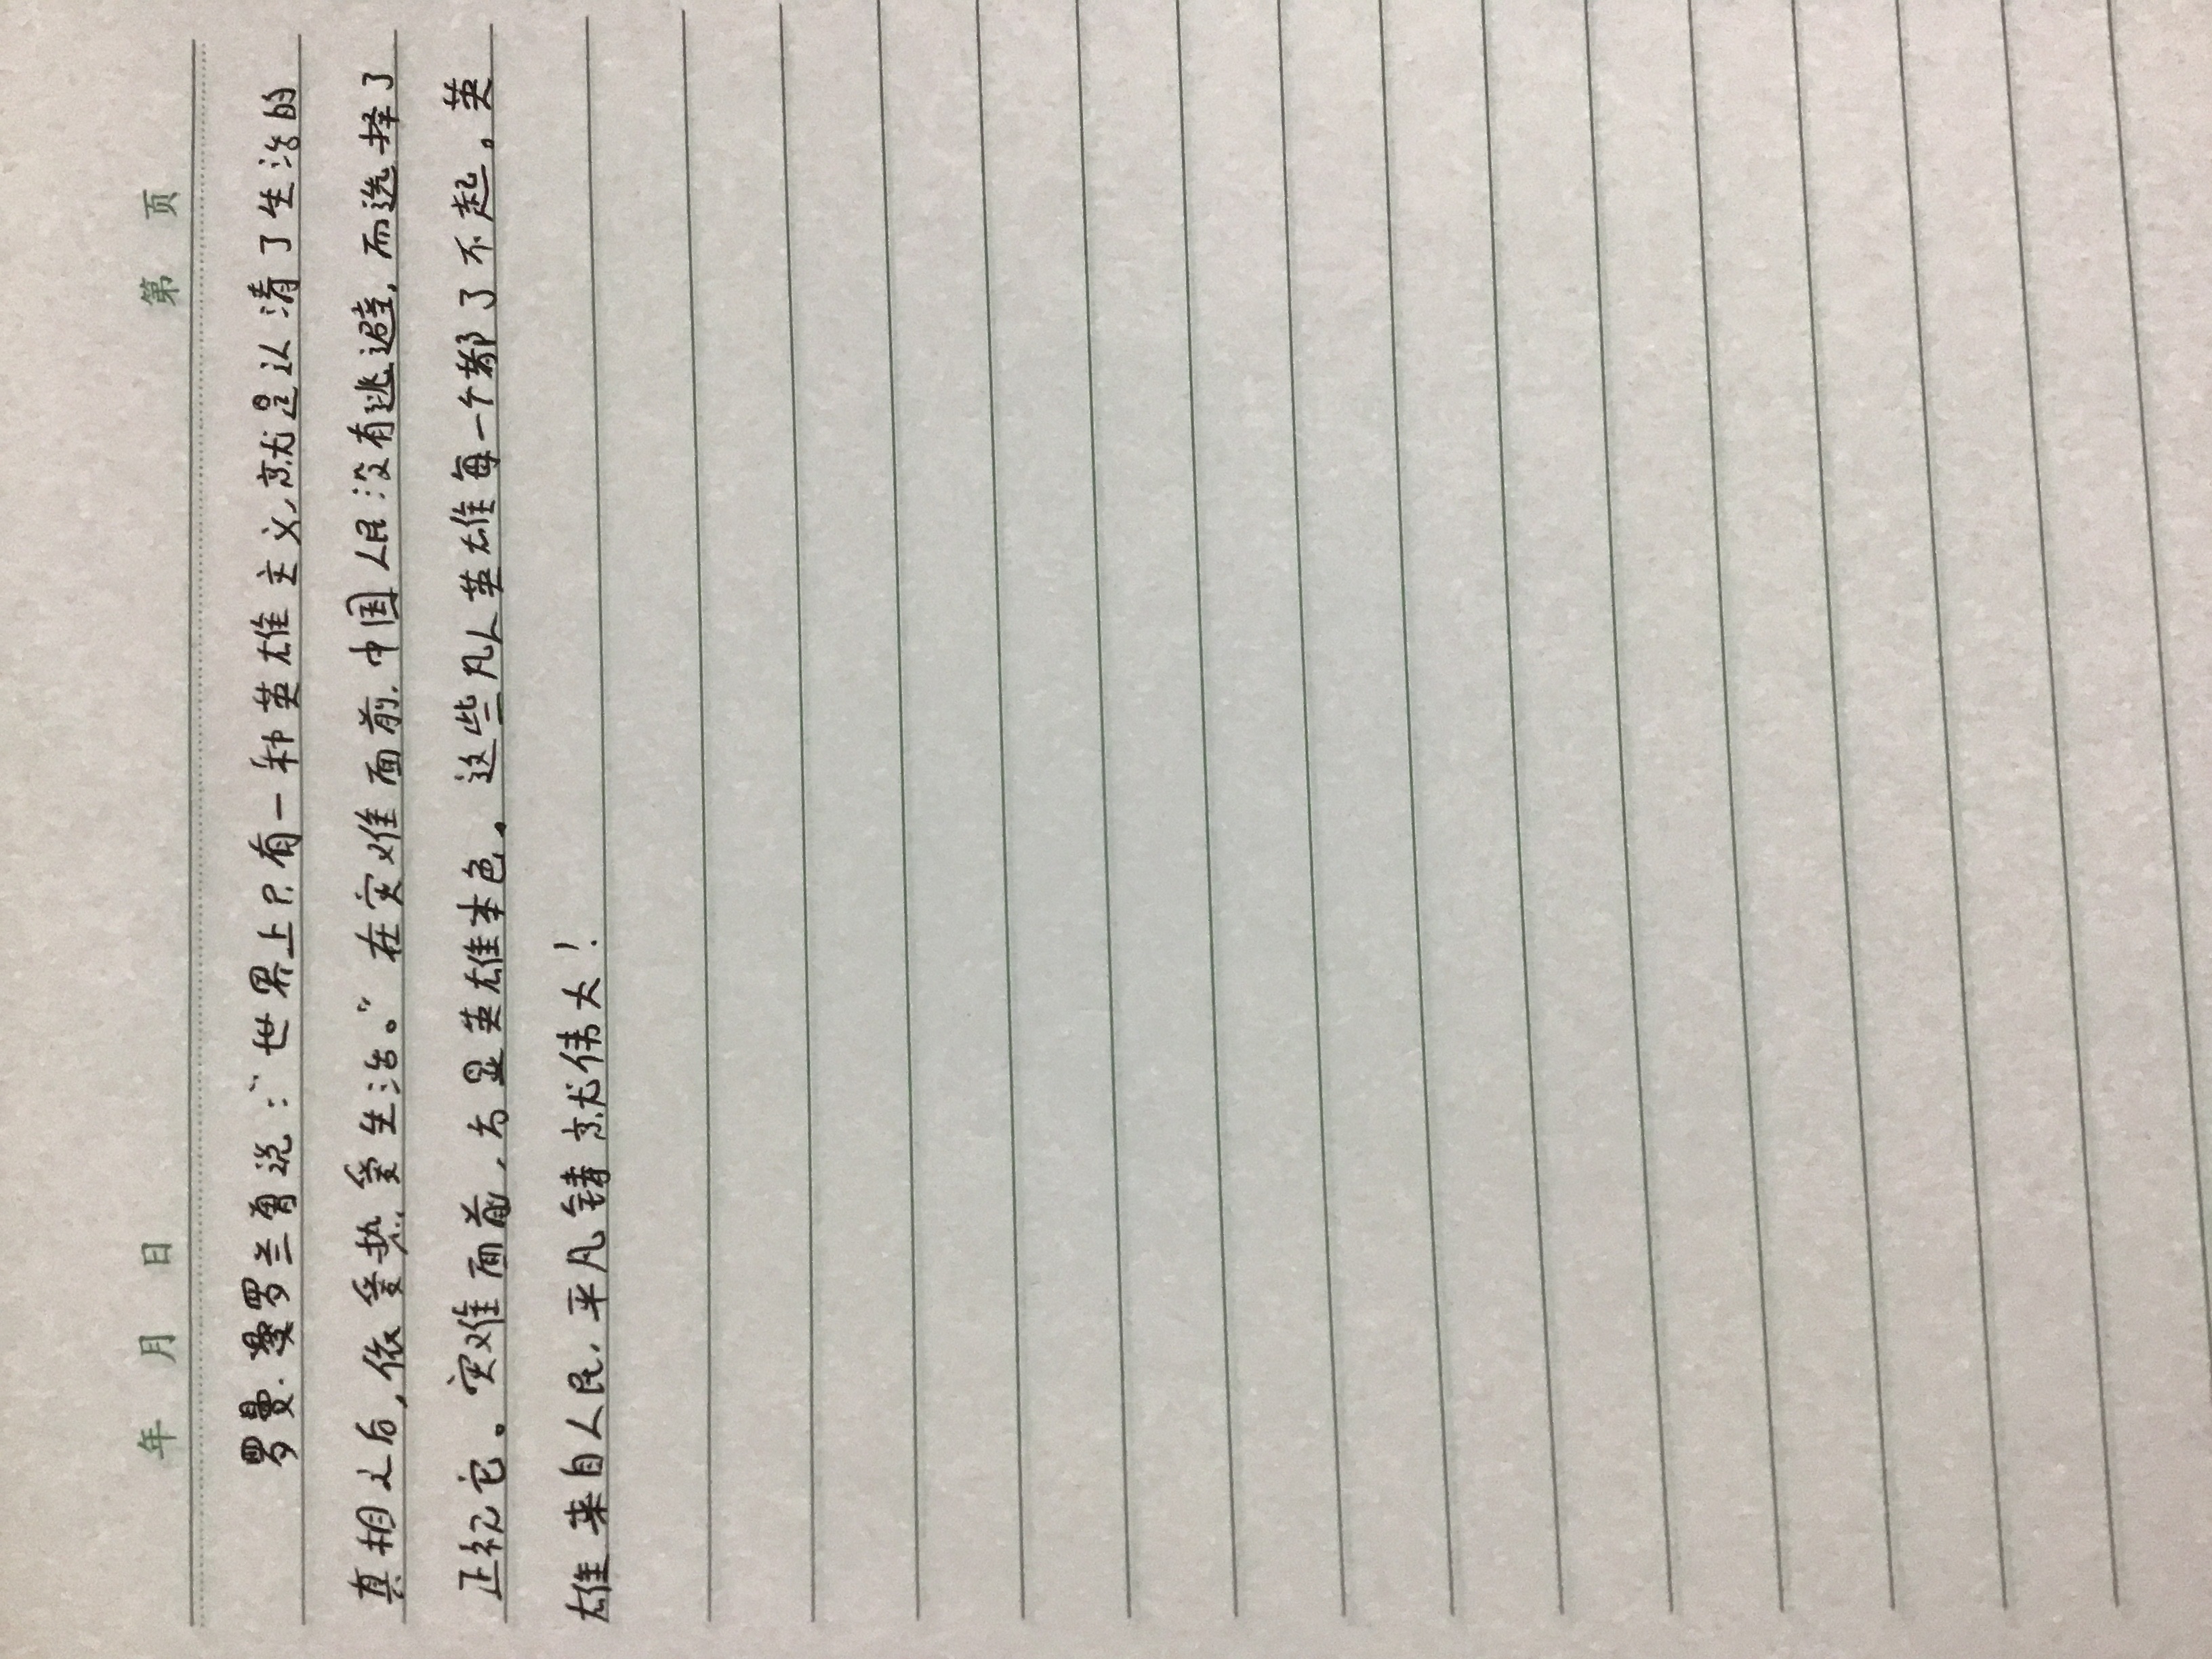 年 月 日 第 页
罗曼·罗兰曾说:“世界上只有一种英雄主义,就是认清了生活的
真相之后,依爱热爱生活。”在灾难面前,中国人民没有逃避,而选择了
正视它。灾难面前,方显英雄本色。这些凡人英雄每一个都了不起。英
雄来自人民,平凡铸就伟大!